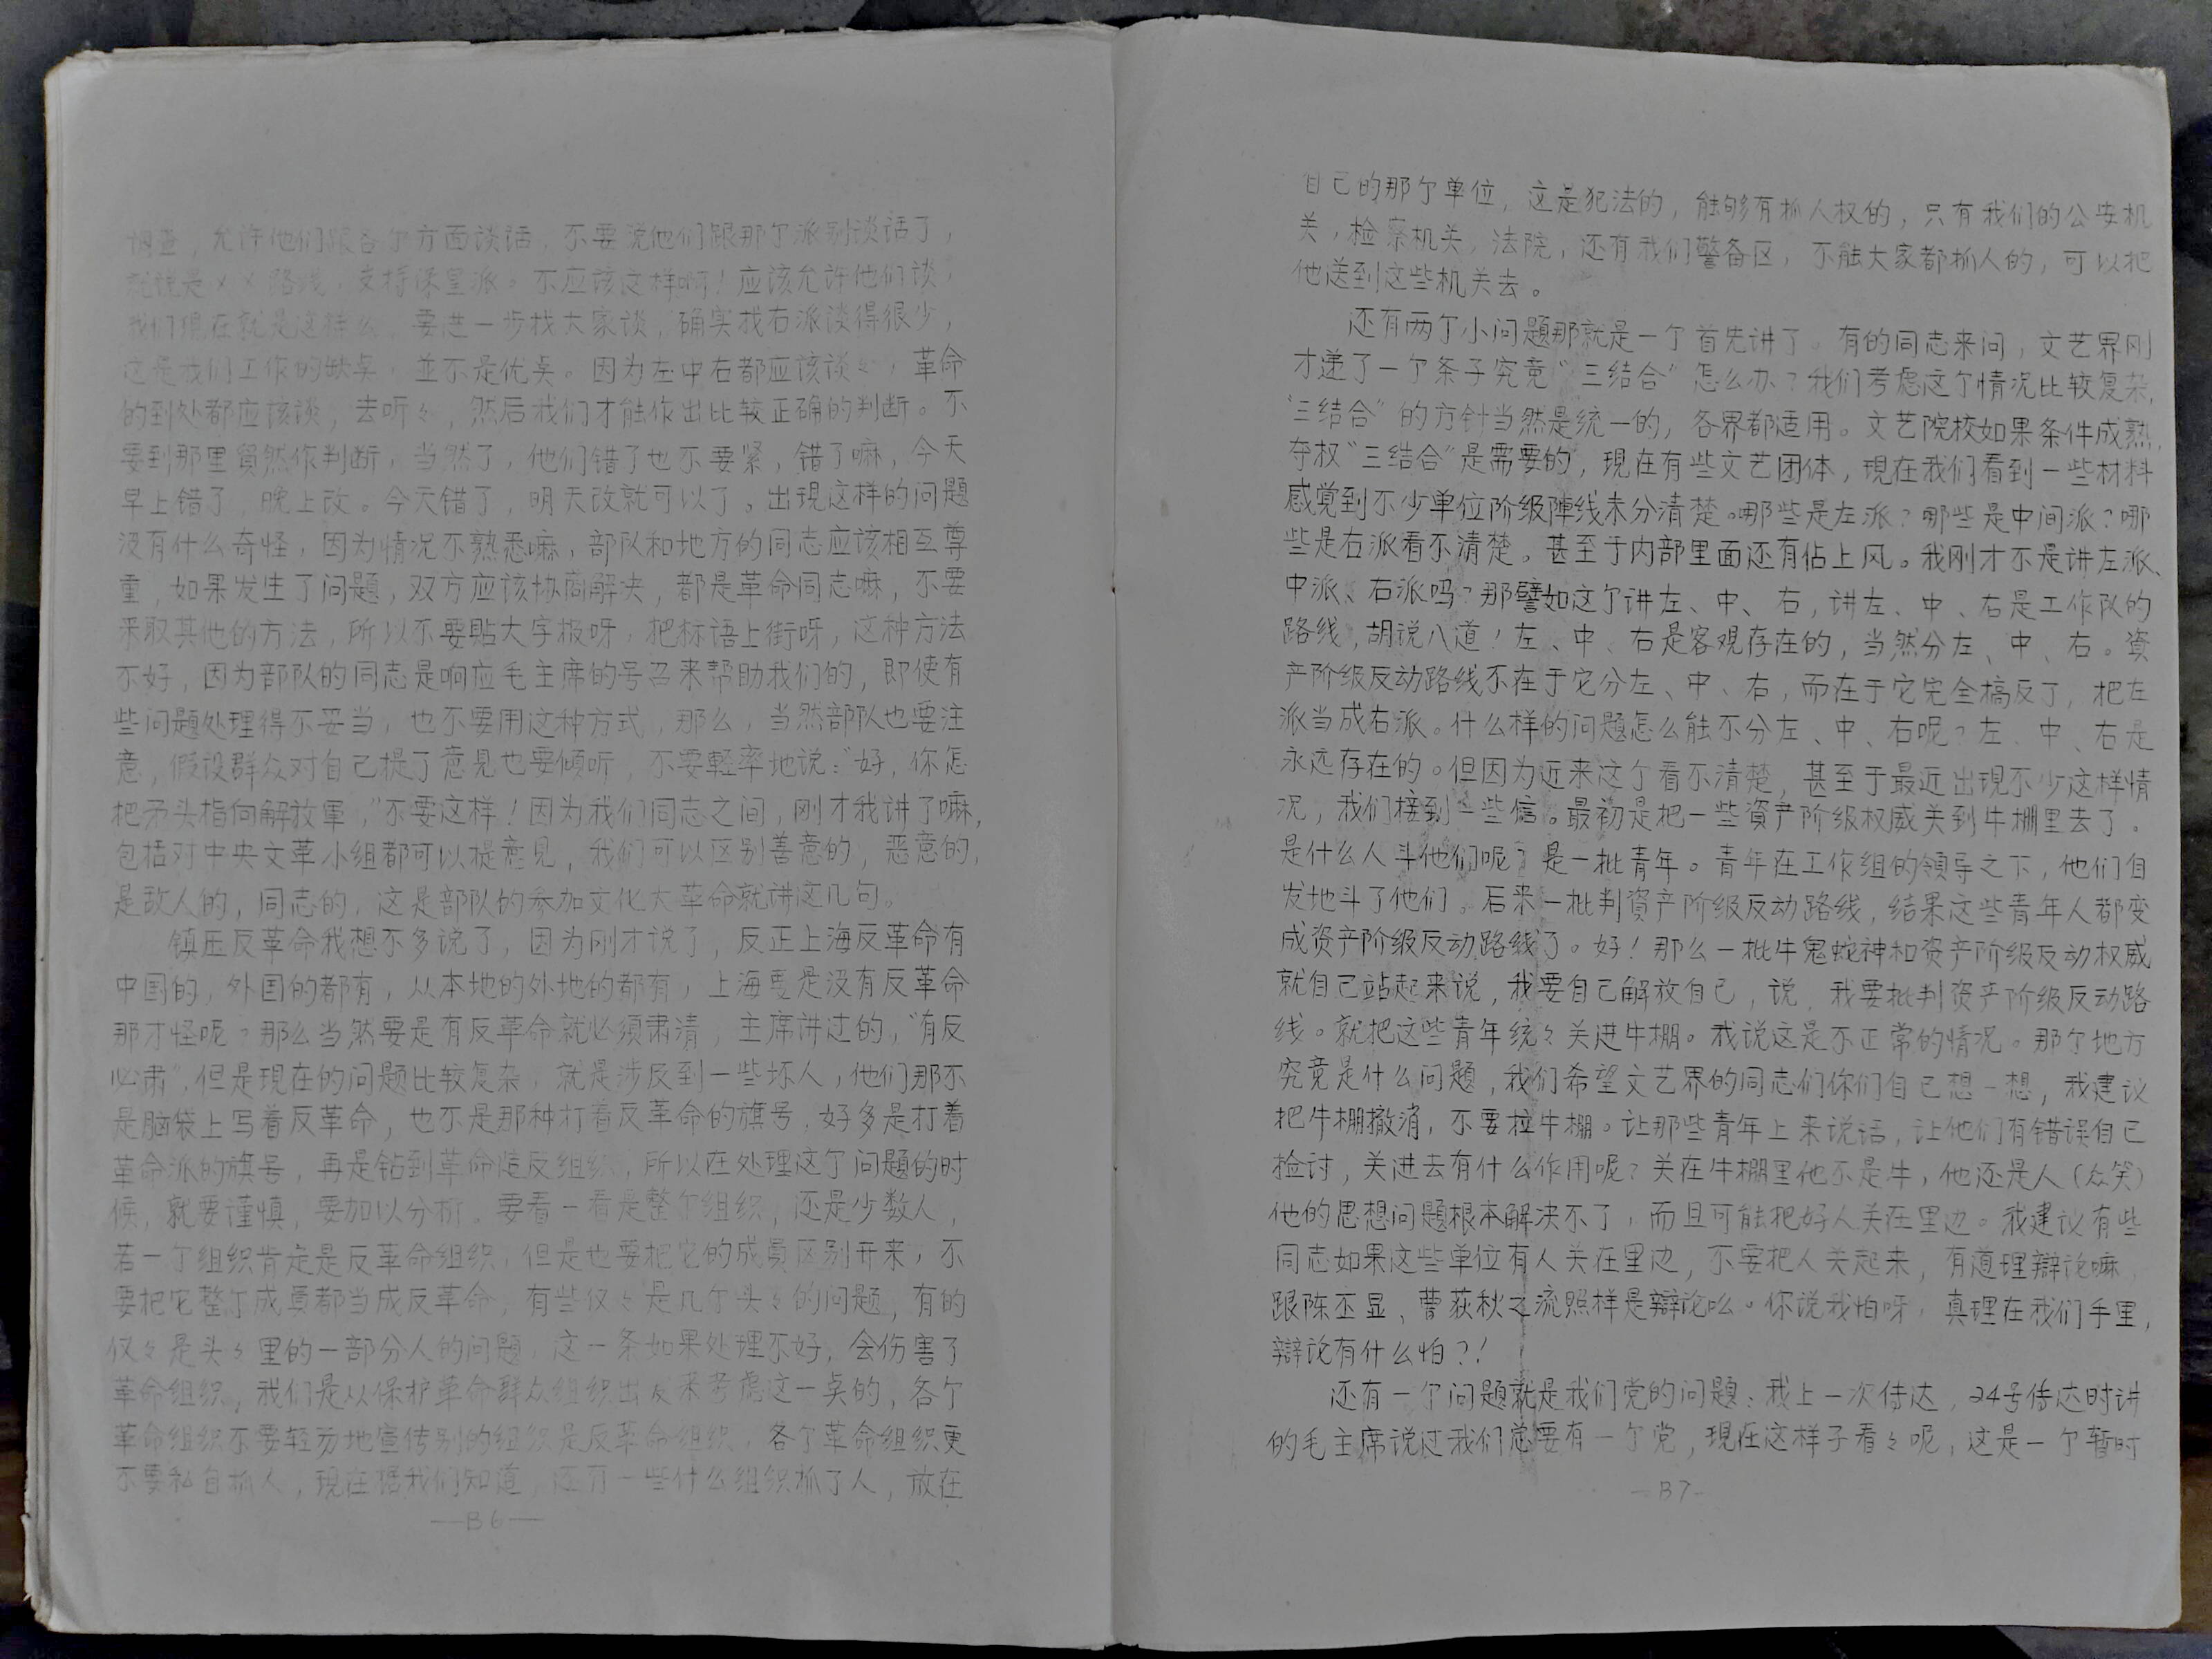 调查，允许他们跟各个方面谈话，不要说他们跟那个派别谈话了，
就说是××路线，支持保皇派。不应该这样啊！应该允许他们谈，
我们现在就是这样么，要进一步找大家谈，确实找右派谈得很少，
这是我们工作的缺桌，並不是优桌。因为左中右都应该谈々，革命
的到处都应该谈，去听々，然后我们才能作出比较正确的判断。不
要到那里贸然作判断，当然了，他们错了也不要紧，错了嘛，今天
早上错了，晚上改。今天错了，明天改就可以了。出现这样的问题
没有什么奇怪，因为情况不熟悉嘛，部队和地方的同志应该相互尊
重，如果发生了问题，双方应该协商解决，都是革命同志嘛，不要
采取其他的方法，所以不要贴大字报呀，把标语上街呀，这种方法
不好，因为部队的同志是响应毛主席的号召来帮助我们的，即使有
些问题处理得不妥当，也不要用这种方式，那么，当然部队也要注
意，假设群众对自己提了意见也要倾听，不要轻率地说：“好，你怎
把矛头指向解放軍，”不要这样！因为我们同志之间，刚才我讲了嘛，
包括对中央文革小组都可以提意见，我们可以区别善意的，恶意的，
是敌人的，同志的，这是部队的参加文化大革命就讲这几句。
镇压反革命我想不多说了，因为刚才说了，反正上海反革命有
中国的，外国的都有，从本地的外地的都有，上海要是没有反革命
那才怪呢？那么当然要是有反革命就必须肃清，主席讲过的，“有反
必肃”，但是现在的问题比较复杂，就是涉及到一些坏人，他们那不
是脑袋上写着反革命，也不是那种打着反革命的旗号，好多是打着
革命派的旗号，再是钻到革命造反组织，所以在处理这个问题的时
候，就要谨慎，要加以分析，要看一看是整个组织，还是少数人，
若一个组织肯定是反革命组织，但是也要把它的成员区别开来，不
要把它整个成员都当成反革命，有些仅々是几个头々的问题，有的
仅々是头々里的一部分人的问题，这一条如果处理不好，会伤害了
革命组织，我们是从保护革命群众组织出发来考虑这一桌的，各个
革命组织不要轻易地宣传别的组织是反革命组织，各个革命组织更
不要私自抓人，现在据我们知道，还有一些什么组织抓了人，放在
—B6—
自己的那个单位，这是犯法的，能够有抓人权的，只有我们的公安机
关，检察机关，法院，还有我们警备区，不能大家都抓人的，可以把
他送到这些机关去。
还有两个小问题那就是一个首先讲了。有的同志来问，文艺界刚
才递了一个条子究竟“三结合”怎么办？我们考虑这个情况比较复杂，
“三结合”的方针当然是统一的，各界都适用。文艺院校如果条件成熟，
夺权“三结合”是需要的，现在有些文艺团体，现在我们看到一些材料
感觉到不少单位阶级陣线未分清楚。哪些是左派？哪些是中间派？哪
些是右派看不清楚。甚至于内部里面还有佔上风。我刚才不是讲左派、
中派、右派吗？那譬如这个讲左、中、右，讲左、中、右是工作队的
路线，胡说八道！左、中、右是客观存在的，当然分左、中、右。資
产阶级反动路线不在于它分左、中、右，而在于它完全搞反了，把左
派当成右派。什么样的问题怎么能不分左、中、右呢？左、中、右是
永远存在的。但因为近来这个看不清楚，甚至于最近出现不少这样情
况，我们接到一些信。最初是把一些資产阶级权威关到牛棚里去了。
是什么人斗他们呢？是一批青年。青年在工作组的领导之下，他们自
发地斗了他们。后来一批判資产阶级反动路线，结果这些青年人都变
成资产阶级反动路线了。好！那么一批牛鬼蛇神和资产阶级反动权威
就自己站起来说，我要自己解放自己，说，我要批判资产阶级反动路
线。就把这些青年统々关进牛棚。我说这是不正常的情况。那个地方
究竟是什么问题，我们希望文艺界的同志们你们自己想一想，我建议
把牛棚撤消，不要拉牛棚。让那些青年上来说话，让他们有错误自己
检讨，关进去有什么作用呢？关在牛棚里他不是牛，他还是人（众笑）
他的思想问题根本解决不了，而且可能把好人关在里边。我建议有些
同志如果这些单位有人关在里边，不要把人关起来，有道理辯论嘛
跟陈丕显、曹荻秋之流照样是辯论么。你说我怕呀，真理在我们手里，
辯论有什么怕？！
还有一个问题就是我们党的问题，我上一次传达，24号传达时讲
的毛主席说过我们总要有一个党，现在这样子看々呢，这是一个暂时
—B7—